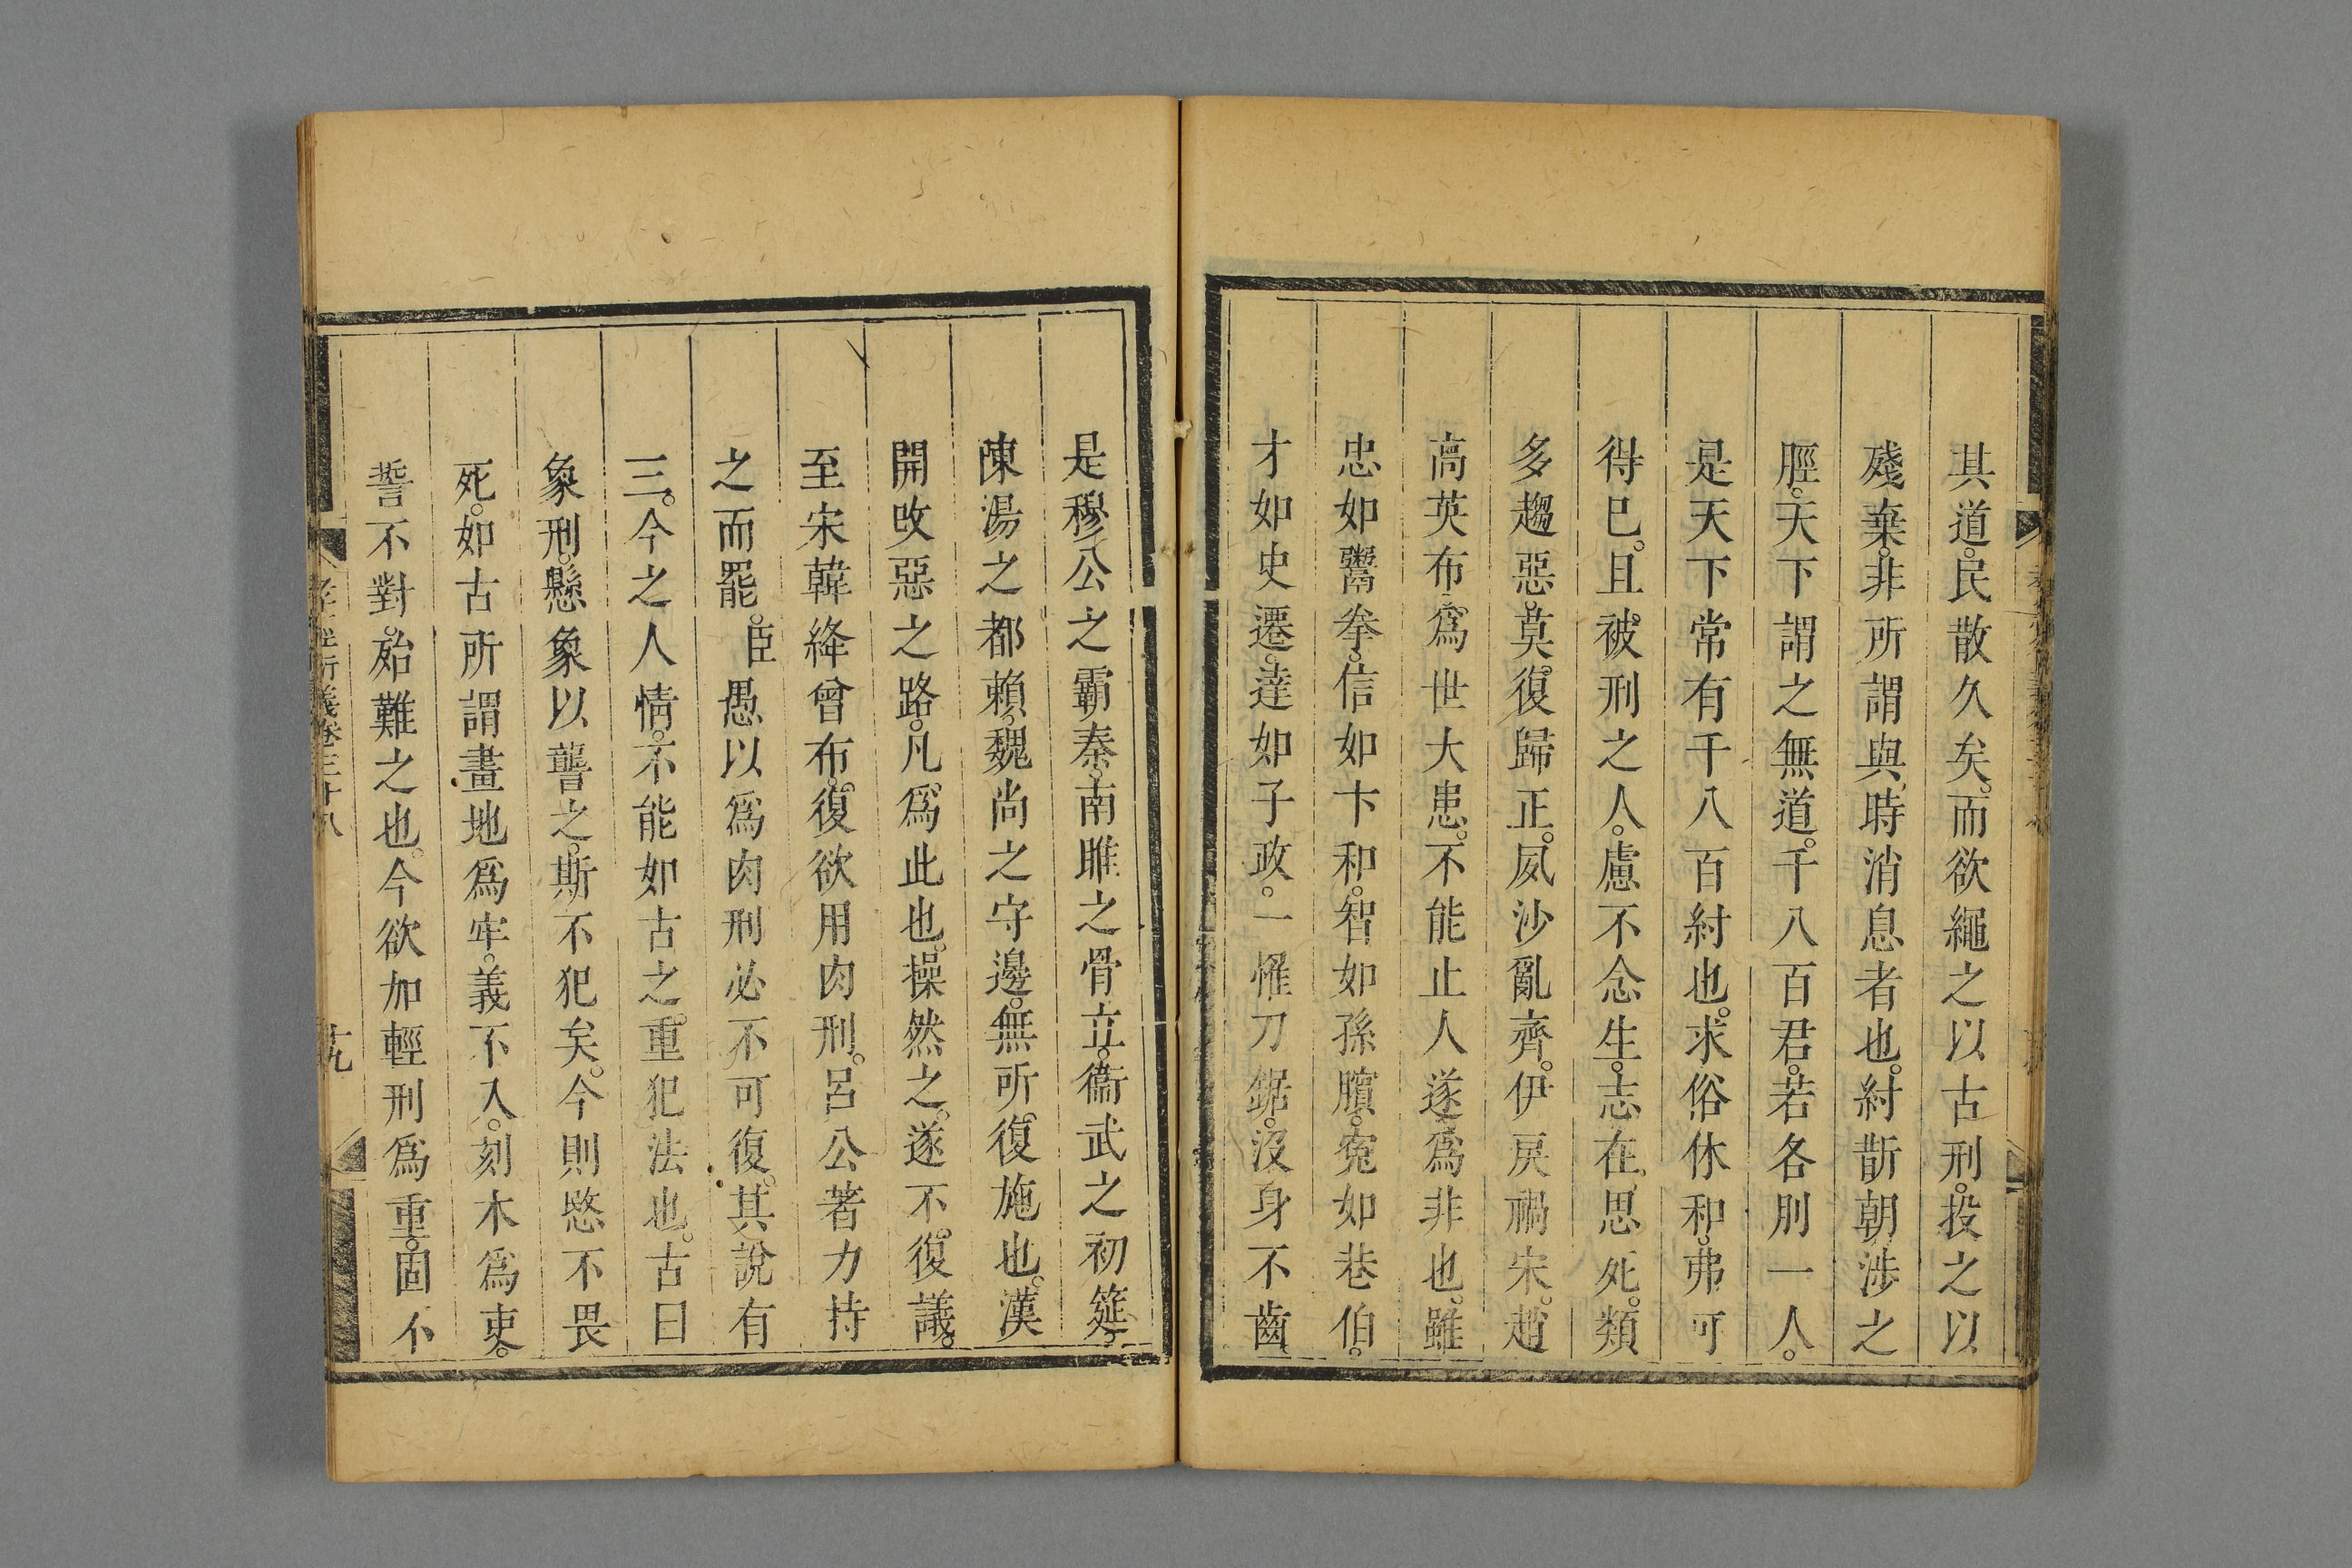 其道。民散久矣。而欲繩之以古刑。投之以
殘棄。非所謂與時消息者也。紂斮朝涉之
脛。天下謂之無道。千八百君。若各刖一人。
是天下常有千八百紂也。求俗休和。弗可
得巳。且被刑之人。慮不念生。志在思死。類
多趨惡。莫復歸正。夙沙亂齊。伊戾禍宋。趙
高英布。爲世大患。不能止人遂爲非也。雖
忠如鬻拳。信如卞和。智如孫臏。寃如巷伯。
才如史遷。達如子政。一罹刀鋸。沒身不齒
是穆公之霸秦。南睢之骨立。衞武之初筵。
陳湯之都賴。魏尚之守邊。無所復施也。漢
開改惡之路。凡爲此也。操然之。遂不復議。
至宋韓絳曾布。復欲用肉刑。呂公著力持
之而罷。臣愚以爲肉刑必不可復。其說有
三。今之人情。不能如古之。重犯法也。古曰
象刑。懸象以讋之。斯不犯矣。今則愍不畏
死。如古所謂畫地爲牢。義不入。刻木爲吏。
誓不對。殆難之也。今欲加輕刑爲重。固不
孝經衍義卷三十八
十九